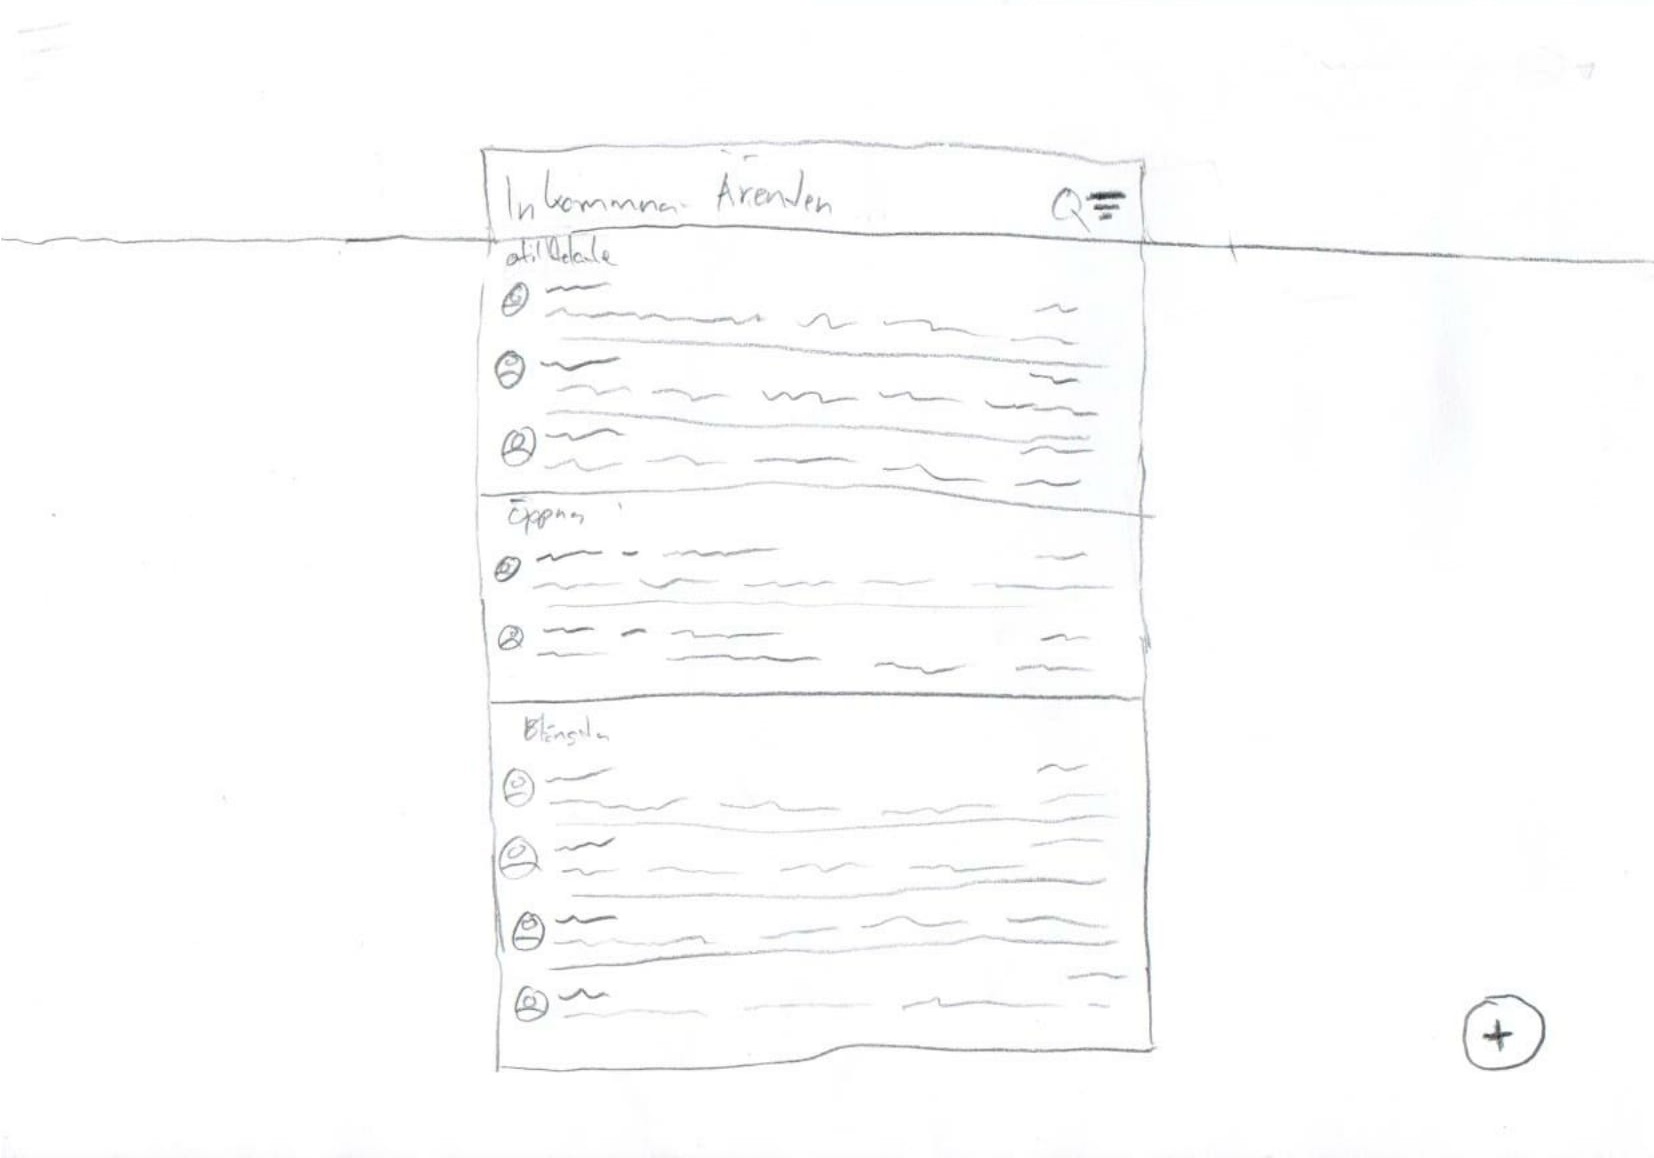 Inkommna Ärenden
otilldelade
Öppna
Stängda
+